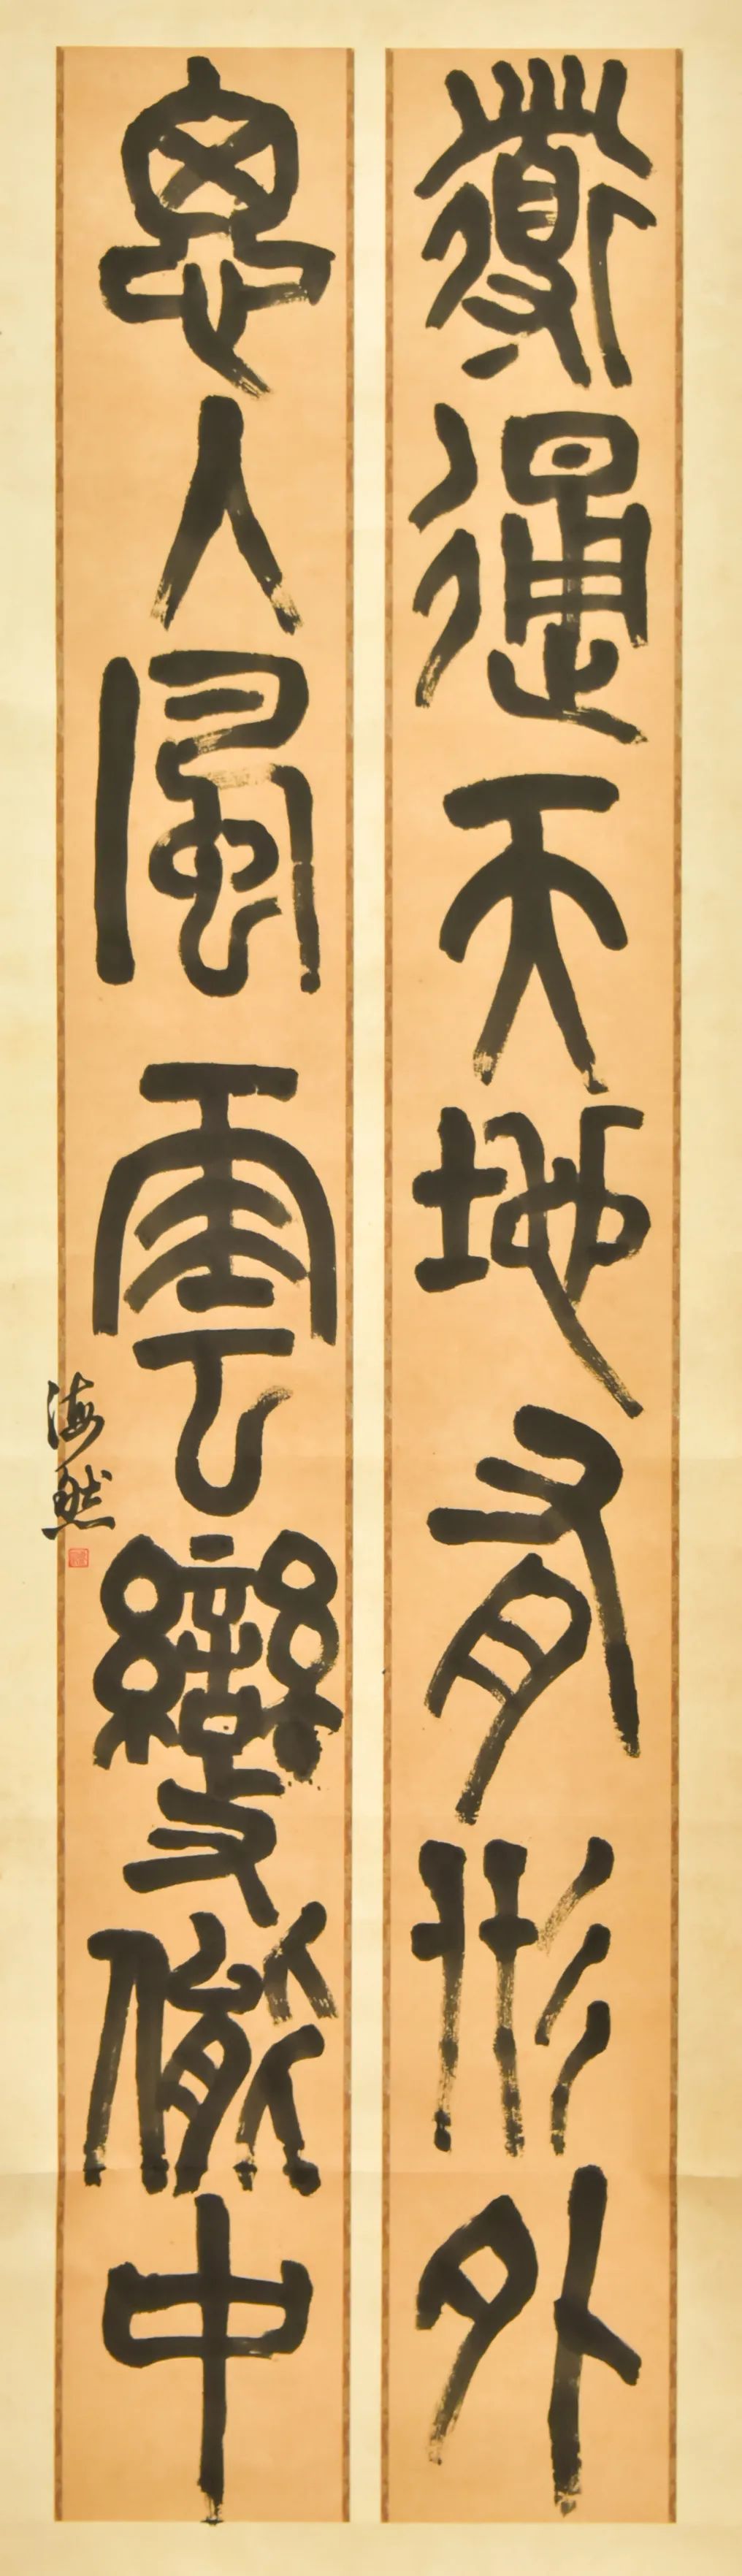 道通天地有形外
思入風雲變態中
海然